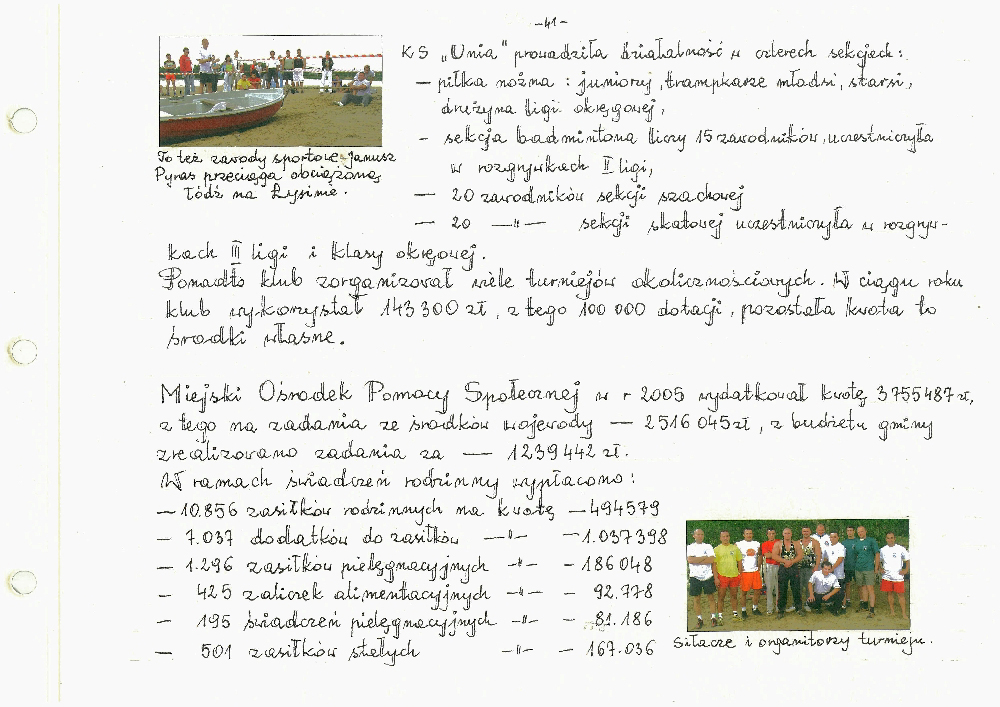 -41-
KS „Unia" prowadziła działalność w czterech sekcjach:
— piłka nożna : juniorzy, trampkarze młodsi, starsi,
drużyna ligi okręgowej,
- sekcja badmintona liczy 15 zawodników, uczestniczyła
w rozgrywkach II ligi,
— 20 zawodników sekcji szachowej
— 20 —"— sekcji skatowej uczestniczyła w rozgryw-
kach III ligi i klasy okręgowej.
To też zawody sportowe - Janusz
Pyras przeciąga obciążoną
łódź na Łysinie.
Ponadto klub zorganizował wiele turniejów okolicznościowych. W ciągu roku
klub wykorzystał 143 300 zł, z tego 100 000 dotacji, pozostała kwota to
środki własne.
Miejski Ośrodek Pomocy Społecznej w r 2005 wydatkował kwotę 3 755 487 zł,
z tego na zadania ze środków wojewody — 2 516 045 zł, z budżetu gminy
zrealizowano zadania za — 1 239 442 zł.
W ramach świadczeń rodzinny wypłacono:
— 10.856 zasiłków rodzinnych na kwotę — 494579
- 7.037 dodatków do zasiłków —"— - 1.037398
- 1.296 zasiłków pielęgnacyjnych -"- - 186 048
- 425 zaliczek alimentacyjnych -"- - 92.778
- 195 świadczeń pielęgnacyjnych -"- - 81.186
- 501 zasiłków stałych -"- - 167.036
Siłacze i organitorzy turnieju.